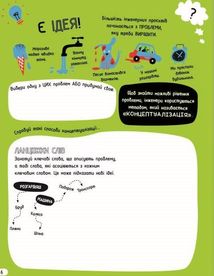 Є ІДЕЯ!
Більшість інженерних проєктів
починається з ПРОБЛЕМИ,
яку треба ВИРІШИТИ.
Морозиво
надто швидко
тане.
Вибери одну з ЦИХ проблем АБО придумай свою.
Щоб знайти можливі рішення
проблеми, інженери користуються
методом, який називається
«КОНЦЕПТУАЛІЗАЦІЯ»
Спробуй такі способи концептуалізації...
ЛАНЦЮЖКИ СЛІВ
Запиши ключові слова, що описують проблему,
а тоді слова, які асоціюються з кожним
ключовим словом. Це може підказати нові ідеї.
РОЗГАРЯЧІ
МАШИНА
Подорож
Транспорт
Бруд
Колеса
Пляма
Шина
6